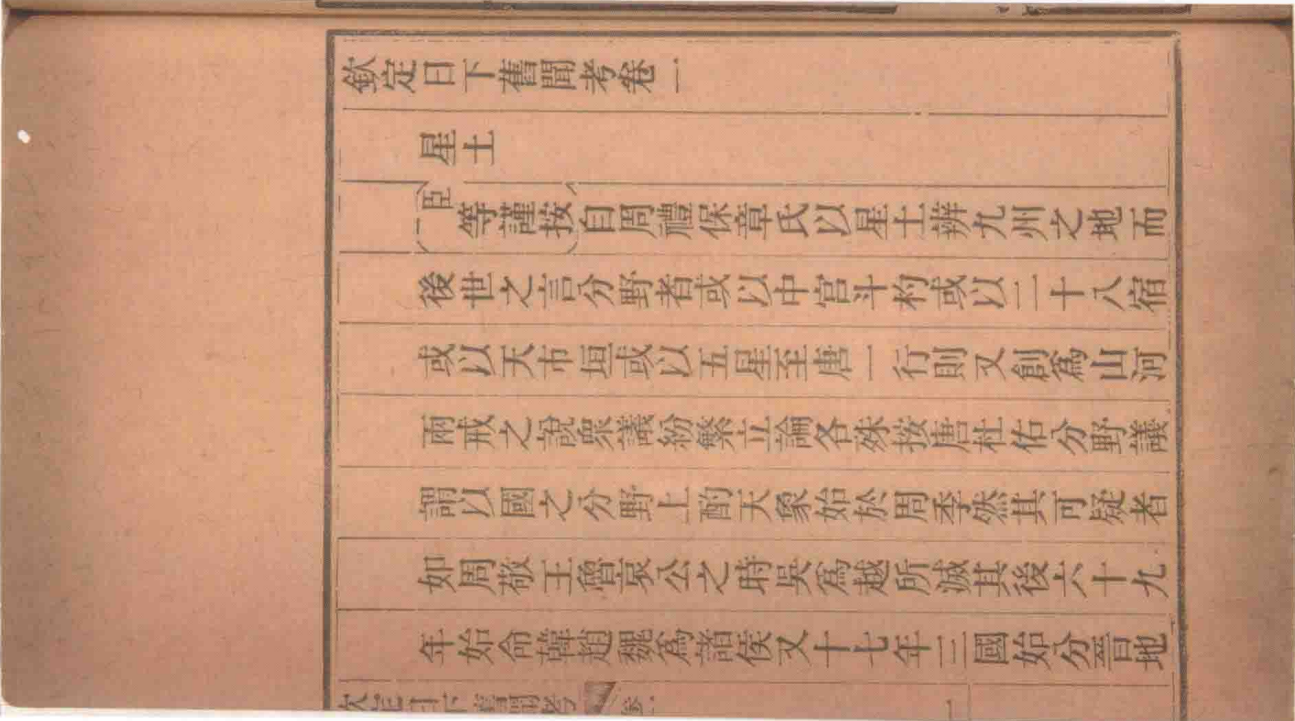 欽定日下舊聞考卷一
星土
臣等謹按自周禮保章氏以星土辨九州之地而
後世之言分野者或以中宮斗杓或以二十八宿
或以天市垣或以五星至唐一行則又創為山河
兩戒之說眾議紛繁立論各殊按唐杜佑分野議
謂以國之分野上酌天象始於周季然其可疑者
如周敬王魯哀公之時吳為越所滅其後六十九
年始命韓趙魏為諸侯又十七年三國始分晉地
欽定日下舊聞考 卷一 一